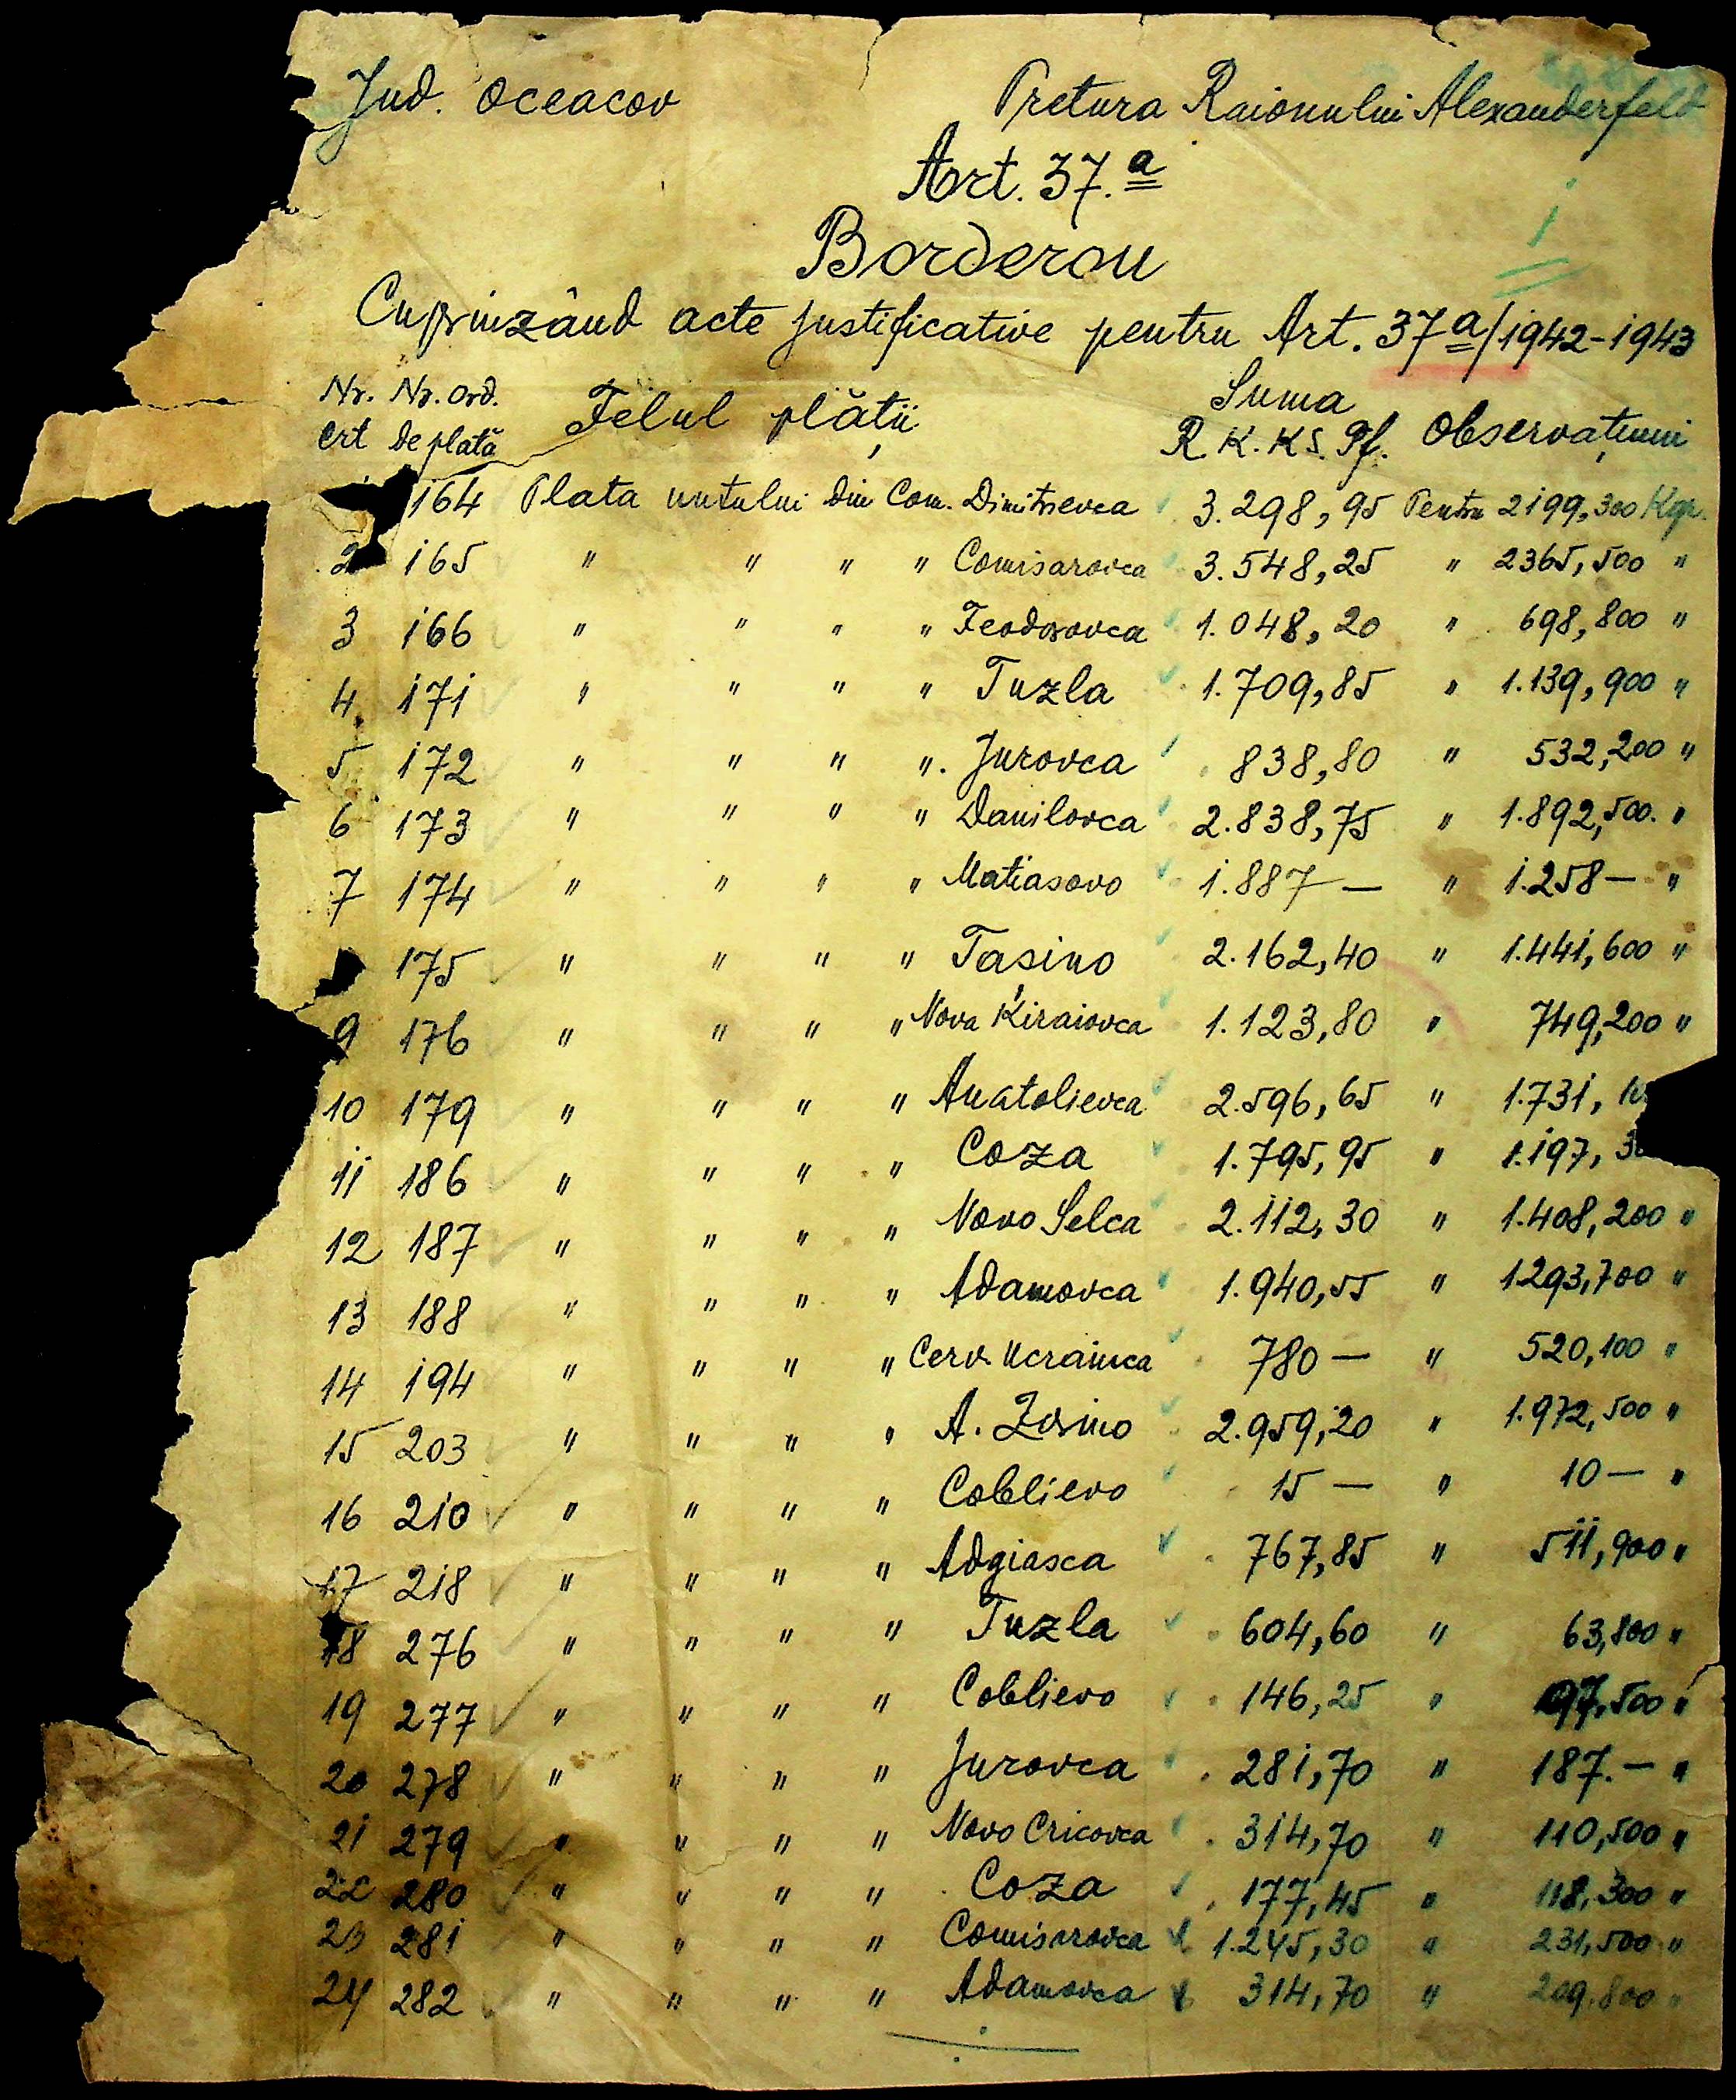 Jud. Oceacov Pretura Raionului Alexanderfeld
Art. 37.a
Borderou
Cuprinzând acte justificative pentru Art. 37a/1942-1943
Nr. Nr. Ord. Felul plății Suma
crt de plată R.K.K.S. Pf. Observațiuni
164 Plata untului din Com. Dimitrevca 3.298,95 Pentru 2199,300 Kgr.
2 165 " " " " Comisarovca 3.548,25 " 2365,500 "
3 166 " " " " Feodorovca 1.048,20 " 698,800 "
4. 171 " " " " Tuzla 1.709,85 " 1.139,900 "
5 172 " " " ". Jurovca 838,80 " 532,200 "
6 173 " " " " Danilovca 2.838,75 " 1.892,500. "
7 174 " " " " Matiasovo 1.887 — " 1.258 — "
175 " " " " Tașino 2.162,40 " 1.441,600 "
9 176 " " " " Nova Kiraiovca 1.123,80 " 749,200 "
10 179 " " " " Anatolievca 2.596,65 " 1.731,
11 186 " " " " Coza 1.795,95 " 1.197,
12 187 " " " " Novo Selca 2.112,30 " 1.408,200 "
13 188 " " " " Adamovca 1.940,55 " 1.293,700 "
14 194 " " " " Cerv. Ucrainca 780 — " 520,100 "
15 203 " " " " A. 2.959,20 " 1.972,500 "
16 210 " " " " Coblievo 15 — " 10 — "
17 218 " " " " Adgiasca 767,85 " 511,900 "
18 276 " " " " Tuzla 604,60 " 63,800 "
19 277 " " " " Coblievo 146,25 " 97,500 "
20 278 " " " " Jurovca 281,70 " 187.— "
21 279 " " " " Novo Cricovca 314,70 " 110,500 "
22 280 " " " " Coza 177,45 " 118,300 "
23 281 " " " " Comisarovca 1.245,30 " 231,500 "
24 282 " " " " Adamovca 314,70 " 209.800 "